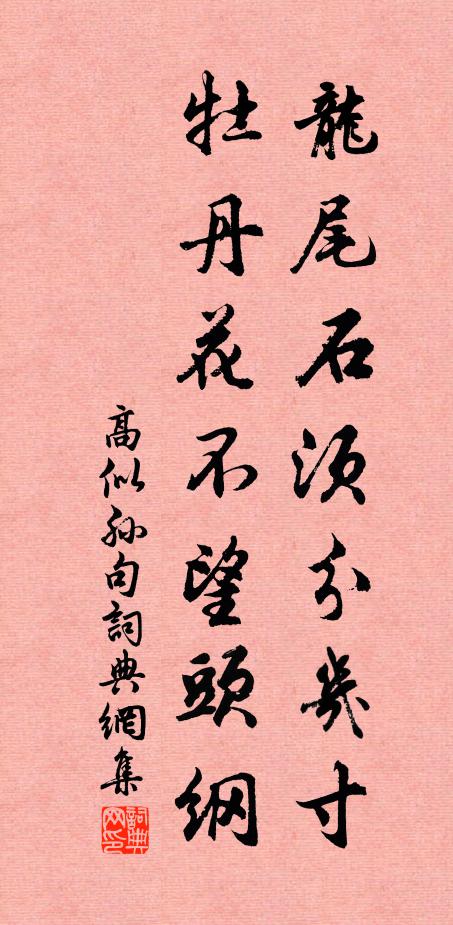 龍尾石須分幾寸
牡丹花不望頭綱
高似孫句詞典網集
詞典网印